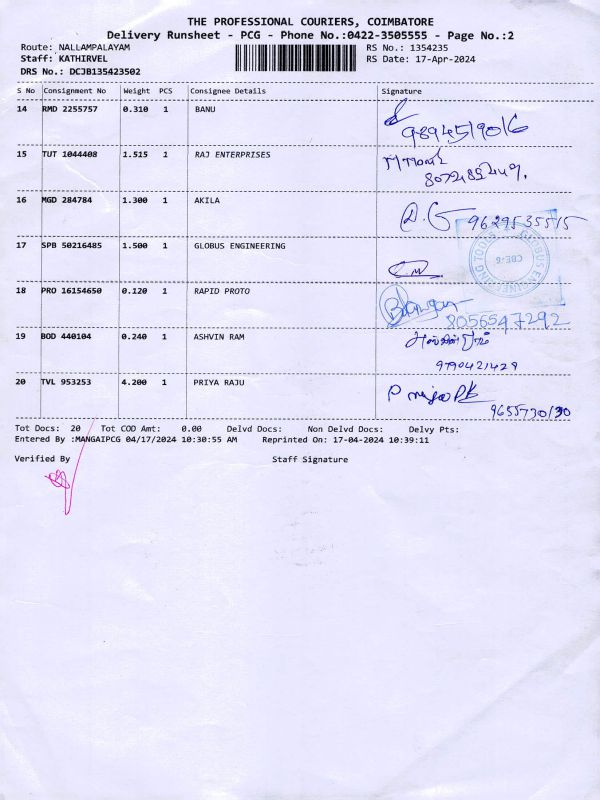 THE PROFESSIONAL COURIERS, COIMBATORE
Delivery Runsheet - PCG - Phone No.:0422-3505555 - Page No.:2
Route: NALLAMPALAYAM RS No.: 1354235
Staff: KATHIRVEL RS Date: 17-Apr-2024
DRS No.: DCJB135423502
S No Consignment No Weight PCS Consignee Details Signature
14 RMD 2255757 0.310 1 BANU
9894519016
15 TUT 1044408 1.515 1 RAJ ENTERPRISES
16 MGD 284784 1.300 1 AKILA
9629535515
17 SPB 50216485 1.500 1 GLOBUS ENGINEERING
GLOBUS ENGINEERING TOOLS
CBE-6
18 PRO 16154650 0.120 1 RAPID PROTO
8056547292
19 BOD 440104 0.240 1 ASHVIN RAM
9790421429
20 TVL 953253 4.200 1 PRIYA RAJU
9655730130
Tot Docs: 20 Tot COD Amt: 0.00 Delvd Docs: Non Delvd Docs: Delvy Pts:
Entered By :MANGAIPCG 04/17/2024 10:30:55 AM Reprinted On: 17-04-2024 10:39:11
Verified By Staff Signature